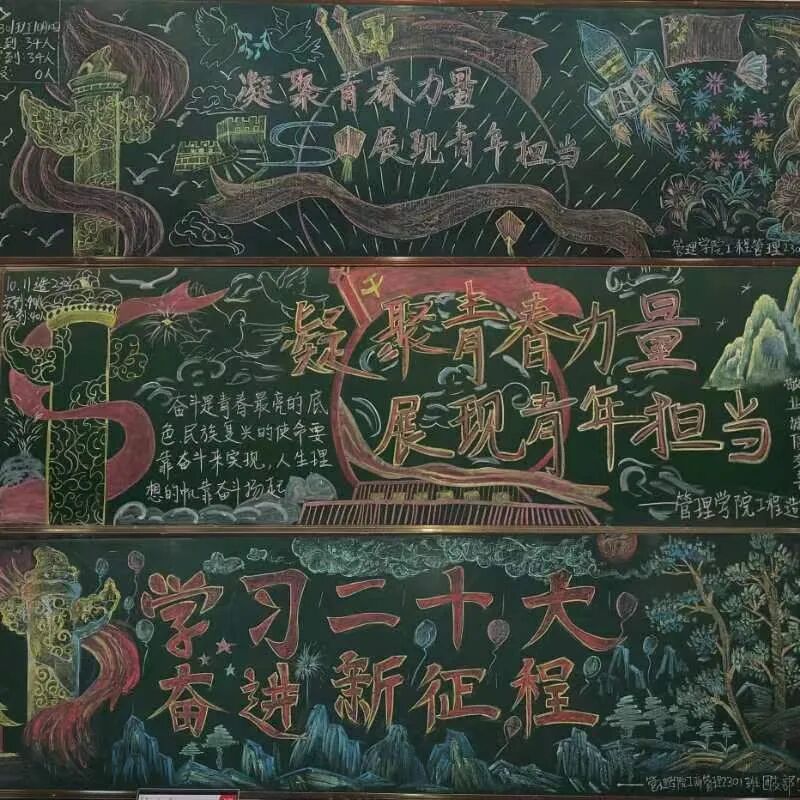 到 34人
到 34人
0人
凝聚青春力量
展现青年担当
管理学院工程管理230
10.11
凝聚青春力量
展现青年担当
奋斗是青春最亮的底
色民族复兴的使命要
靠奋斗来实现,人生理
想的帆靠奋斗扬起
管理学院工程造
学习二十大
奋进新征程
2301班团支部